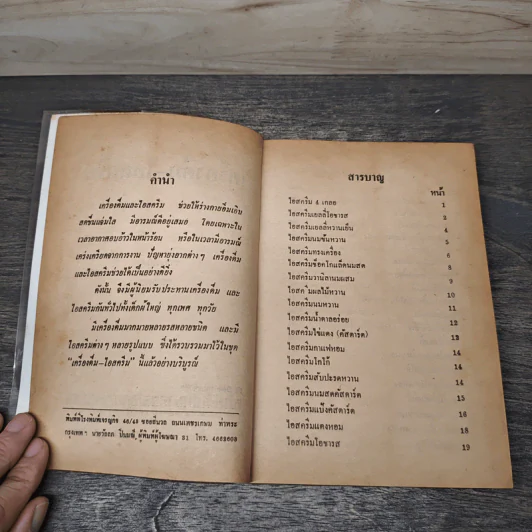 คำนำ
เครื่องดื่มและไอสครีม ช่วยให้ร่างกายอิ่มเอิบ
สดชื่นแจ่มใส มีอารมณ์ดีอยู่เสมอ โดยเฉพาะใน
เวลาอากาศอบอ้าวในหน้าร้อน หรือในเวลามีอารมณ์
เคร่งเครียดจากการงาน ปัญหายุ่งยากต่างๆ เครื่องดื่ม
และไอสครีมช่วยได้เป็นอย่างดียิ่ง
ดังนั้น จึงมีผู้นิยมรับประทานเครื่องดื่ม และ
ไอสครีมกันทั่วไปทั้งเด็กผู้ใหญ่ ทุกเพศ ทุกวัย
มีเครื่องดื่มมากมายหลายรสหลายชนิด และมี
ไอสครีมต่างๆ หลายรูปแบบ ซึ่งได้รวบรวมมาไว้ในชุด
"เครื่องดื่ม-ไอสครีม" นี้แล้วอย่างบริบูรณ์
พิมพ์ที่โรงพิมพ์เจริญกิจ 45/45 ซอยอินวอ ถนนเพชรเกษม ท่าพระ
กรุงเทพฯ ผู้พิมพ์ผู้โฆษณา 21 โทร. 4662609
สารบาญ
หน้า
ไอสครีม 4 เกลอ 1
ไอสครีมเยลลี่โอชารส 2
ไอสครีมเยลลี่หวานเย็น 4
ไอสครีมนมข้นหวาน 5
ไอสครีมทรงเครื่อง 6
ไอสครีมช็อคโกแล็ตนมสด 8
ไอสครีมวานิลานมผสม 9
ไอสครีมผลไม้หวาน 10
ไอสครีมนมหวาน 11
ไอสครีมน้ำตาลอร่อย 12
ไอสครีมไข่แดง (คัสตาร์ด) 13
ไอสครีมกาแฟหอม 14
ไอสครีมโกโก้ 14
ไอสครีมสับปะรดหวาน 14
ไอสครีมนมสดคัสตาร์ด 15
ไอสครีมแป้งคัสตาร์ด 16
ไอสครีมแตงหอม 18
ไอสครีมโอชารส 19